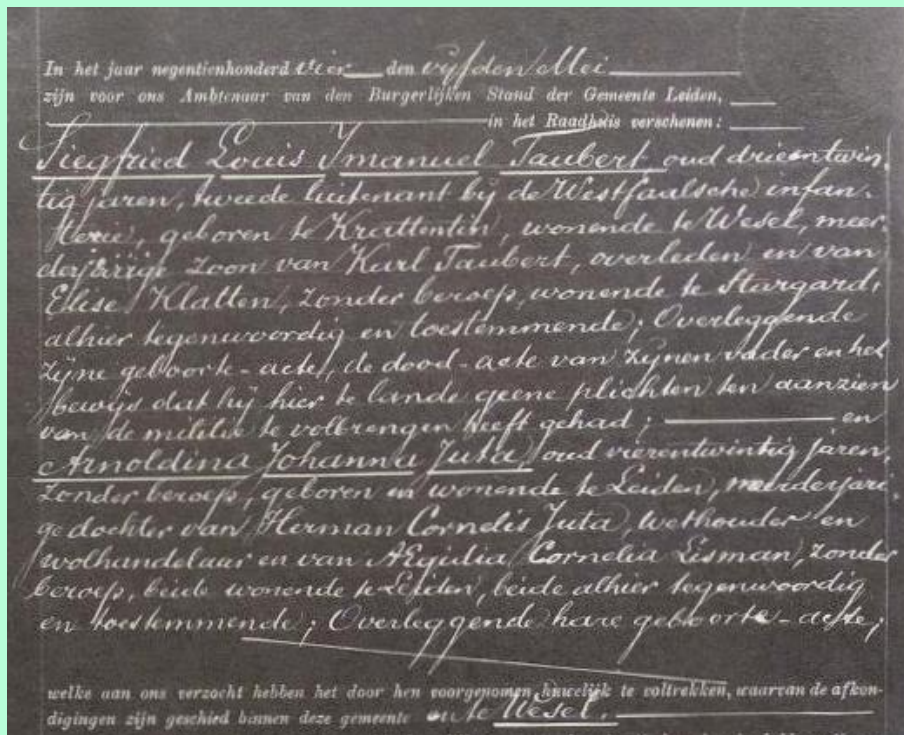 In het jaar negentienhonderd vier den vijfden Mei
zijn voor ons Ambtenaar van den Burgerlijken Stand der Gemeente Leiden,
in het Raadhuis verschenen:
Siegfried Louis Imanuel Taubert oud drieentwin-
tig jaren, tweede luitenant bij de Westfaalsche infan-
terie, geboren te Krattentin, wonende te Wesel, meer-
derjarige zoon van Karl Taubert, overleden en van
Elise Klatten, zonder beroep, wonende te Stargard,
alhier tegenwoordig en toestemmende; Overleggende
zijne geboorte-acte, de dood-acte van zijnen vader en het
bewijs dat hij hier te lande geene plichten ten aanzien
van de militie te volbrengen heeft gehad; en
Arnoldina Johanna Juta, oud vierentwintig jaren,
zonder beroep, geboren en wonende te Leiden, meerderjari-
ge dochter van Herman Cornelis Juta, wethouder en
wolhandelaar en van AEgidia Cornelia Lisman, zonder
beroep, beide wonende te Leiden, beide alhier tegenwoordig
en toestemmende; Overleggende hare geboorte-acte;
welke aan ons verzocht hebben het door hen voorgenomen huwelijk te voltrekken, waarvan de afkon-
digingen zijn geschied binnen deze gemeente en te Wesel.